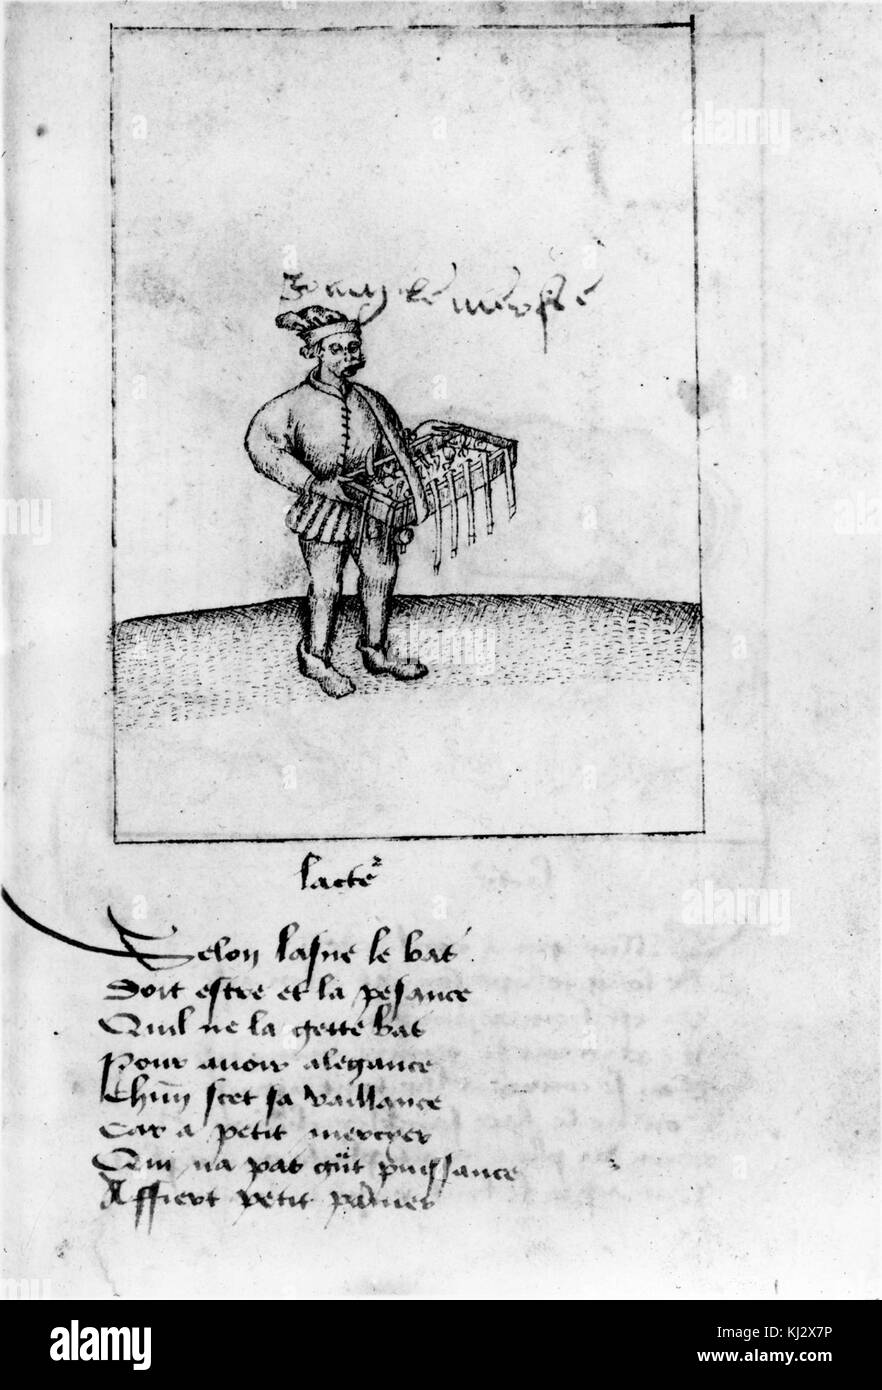 lacteur
Selon lasne le bat
Doit estre et la pesance
Quil ne la gette bas
Pour avoir alegance
Chun scet sa vaillance
Car a petit mercyer
Qui na pas gut puissance
Affiert petit panier
alamy
Image ID: KJ2X7P
www.alamy.com